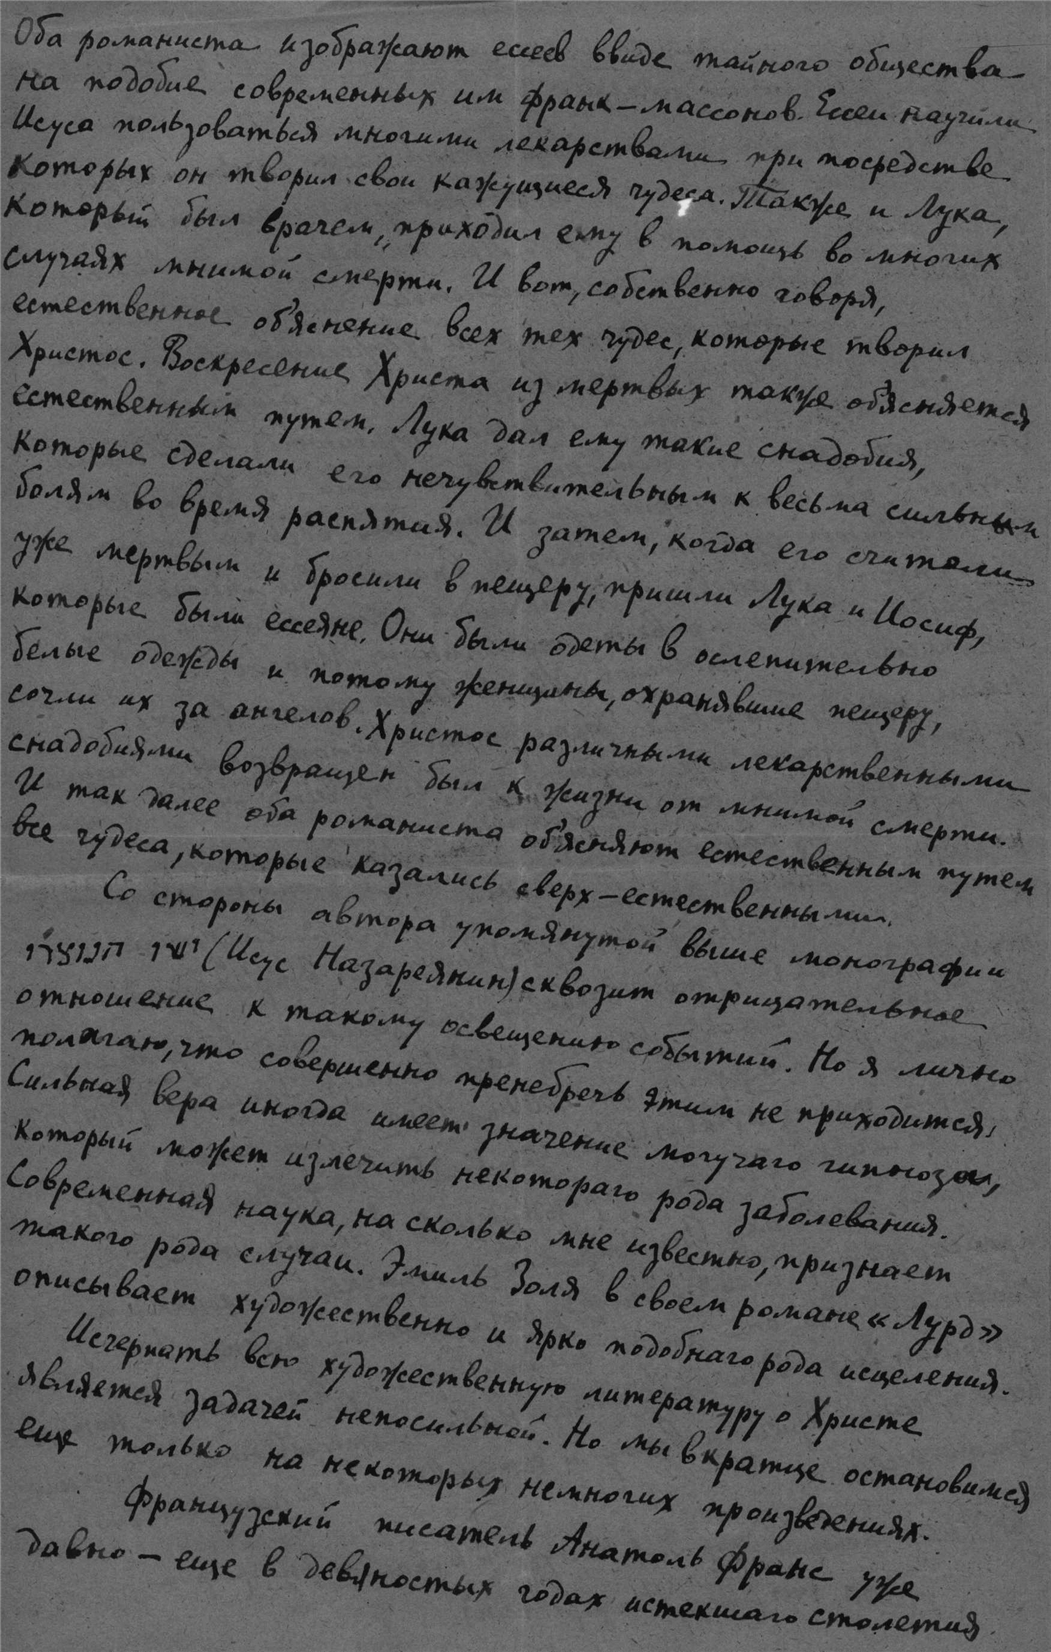 Оба романиста изображают ессеев ввиде тайного общества
на подобие современных им франк-массонов. Ессеи научили
Исуса пользоваться многими лекарствами при посредстве
которых он творил свои кажущиеся чудеса. Также и Лука,
который был врачем, приходил ему в помощь во многих
случаях мнимой смерти. И вот, собственно говоря,
естественное об'яснение всех тех чудес, которые творил
Христос. Воскресение Христа из мертвых также об'ясняется
естественным путем. Лука дал ему такие снадобия,
которые сделали его нечувствительным к весьма сильным
болям во время распятия. И затем, когда его считали
уже мертвым и бросили в пещеру, пришли Лука и Иосиф,
которые были ессеяне. Они были одеты в ослепительно
белые одежды и потому женщины, охранявшие пещеру,
сочли их за ангелов. Христос различными лекарственными
снадобиями возвращен был к жизни от мнимой смерти.
И так далее оба романиста об'ясняют естественным путем
все чудеса, которые казались сверх-естественными.
Со стороны автора упомянутой выше монографии
ישו הנוצרי (Исус Назареянин) сквозит отрицательное
отношение к такому освещению событий. Но я лично
полагаю, что совершенно пренебречь этим не приходится.
Сильная вера иногда имеет значение могучаго гипноза,
который может излечить некотораго рода заболевания.
Современная наука, на сколько мне известно, признает
такого рода случаи. Эмиль Золя в своем романе «Лурд»
описывает художественно и ярко подобнаго рода исцеления.
Исчерпать всю художественную литературу о Христе
является задачей непосильной. Но мы вкратце остановимся
еще только на некоторых немногих произведениях.
Французский писатель Анатоль Франс уже
давно – еще в девяностых годах истекшаго столетия